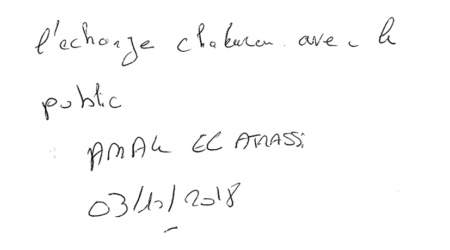 l'échange chaleureux avec le
public
AMAL EL ATRASSI
03/10/2018